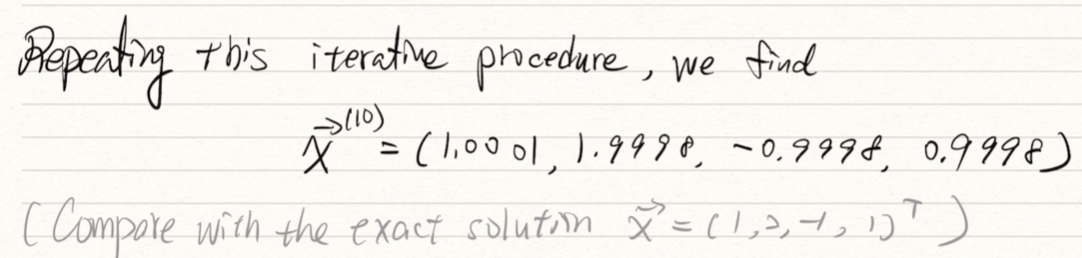 Repeating this iterative procedure, we find
x⃗⁽¹⁰⁾ = (1.0001, 1.9998, -0.9998, 0.9998)
(Compare with the exact solution x⃗ = (1, 2, -1, 1)ᵀ)